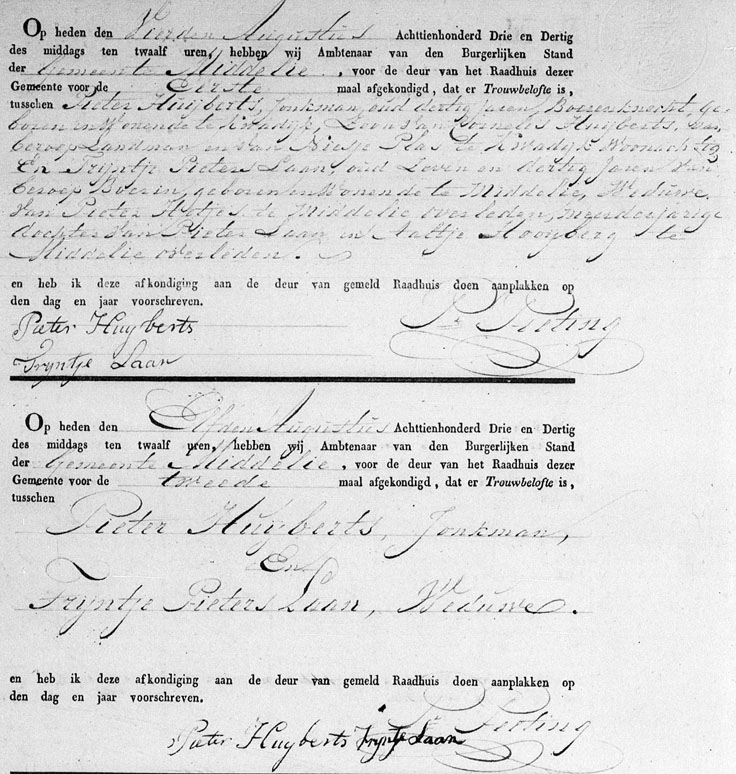 Op heden den Vierden Augustus Achttienhonderd Drie en Dertig
des middags ten twaalf uren, hebben wij Ambtenaar van den Burgerlijken Stand
der Gemeente Middelie, voor de deur van het Raadhuis dezer
Gemeente voor de Eerste maal afgekondigd, dat er Trouwbelofte is,
tusschen Pieter Huyberts, Jonkman, oud dertig Jaren, Boerenknecht, ge-
boren en Wonende te Kwadijk, Zoon van Cornelis Huyberts, van
beroep Landman en van Niesje Plas te Kwadijk Woonachtig
En Tryntje Pieters Laan, oud Zeven en dertig Jaren van
beroep Boerin, geboren en Wonende te Middelie, Weduwe
van Pieter te Middelie overleden, meerderjarige
dochter van Pieter Laan en Aaltje Hooyberg te
Middelie overleden.
en heb ik deze afkondiging aan de deur van gemeld Raadhuis doen aanplakken op
den dag en jaar voorschreven.
Pieter Huyberts
Tryntje Laan
Op heden den Elfden Augustus Achttienhonderd Drie en Dertig
des middags ten twaalf uren, hebben wij Ambtenaar van den Burgerlijken Stand
der Gemeente Middelie, voor de deur van het Raadhuis dezer
Gemeente voor de tweede maal afgekondigd, dat er Trouwbelofte is,
tusschen
Pieter Huyberts, Jonkman,
En
Tryntje Pieters Laan, Weduwe.
en heb ik deze afkondiging aan de deur van gemeld Raadhuis doen aanplakken op
den dag en jaar voorschreven.
Pieter Huyberts Tryntje Laan